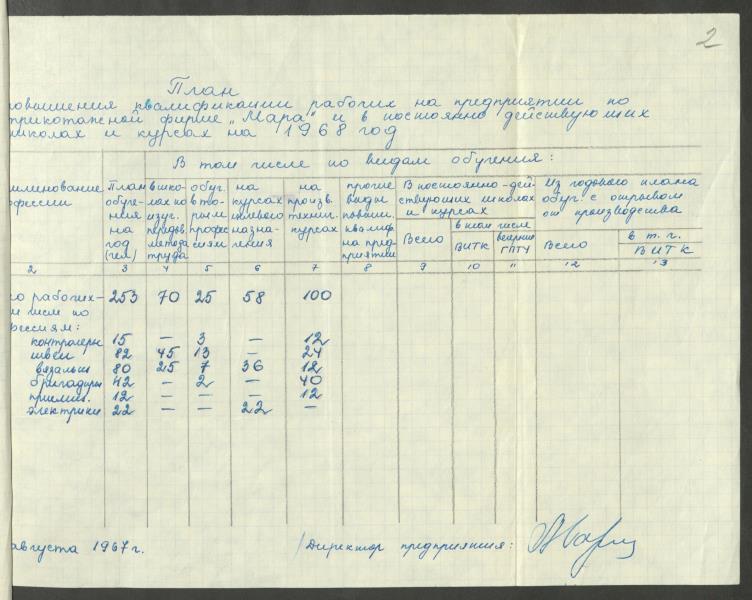 2
План
повышения квалификации рабочих на предприятии по
трикотажной фирме „Мара" и в постоянно действующих
школах и курсах на 1968 год
В том числе по видам обучения:
именование профессии | План обуче- ния на год (чел) | в шко- лах по изуч. передов. метода труда | обуч. вто- рым профес- сиям | на курсах целевого назна- чения | на произв. технич. курсах | прочие виды повыш. квалиф. на пред- приятии | В постоянно-дей- ствующих школах и курсах | Из годового плана обуч. с отрывом от производства
Всего | в том числе | Всего | в т. ч.
ВИТК | вечерние ГПТУ | ВИТК
2 3 4 5 6 7 8 9 10 11 12 13
го рабочих- 253 70 25 58 100
м числ по
фессиям:
контролеры 15 — 3 — 12
швеи 82 45 13 — 24
вязальщ 80 25 7 36 12
бригадиры 42 — 2 — 40
приемщ. 12 — — — 12
электрики 22 — — 22 —
августа 1967 г. /Директор предприятия: